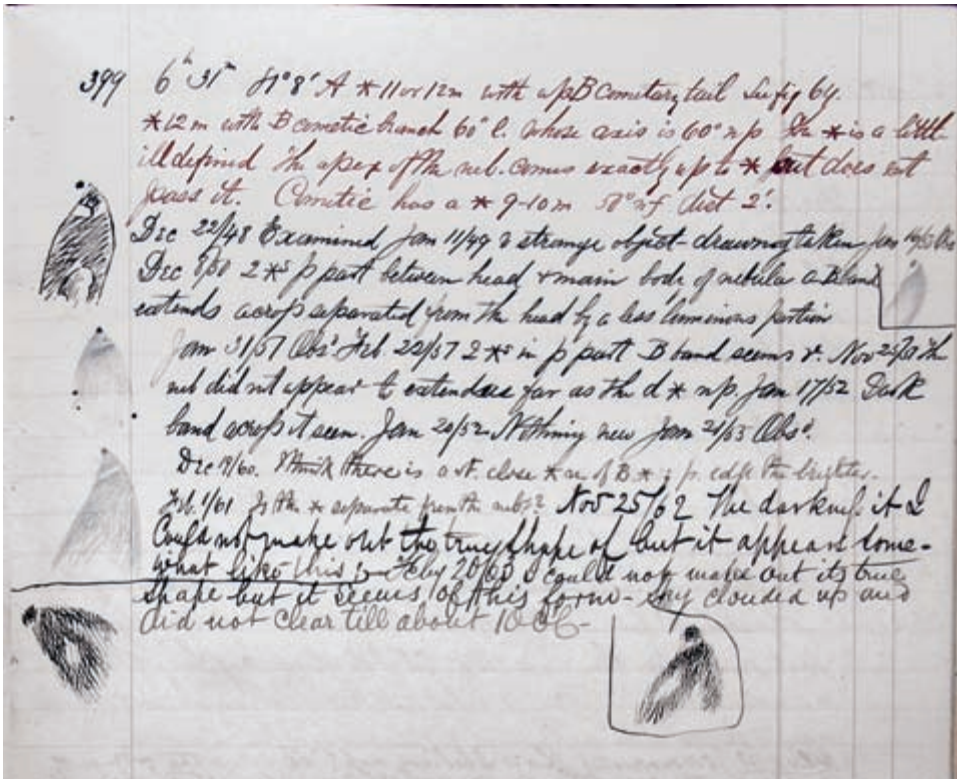 399 6h 31m 81° 8' A * 11 or 12m with npB cometary tail See fig 64.
* 12 m with B cometic branch 60" l. whose axis is 60° np The * is a little
ill defined The apex of the neb. comes exactly up to * but does not
pass it. Cometic has a * 9-10m nf dist 2'.
Dec 22/48 Examined Jan 11/49 a strange object - drawing taken Jan Obs
Dec 2 *s p part between head & main body of nebula a B band
extends across separated from the head by a less luminous portion
Jan 31/51 Obsd Feb. 22/51 2 *s in p part B band seems r. Nov The
neb did not appear to extend as far as the d * np. Jan 17/52 Dark
band across it seen. Jan 20/52 Nothing new Jan 21/53 Obsd.
Dec 19/60. Think there is a close * n of B * ; p. edge the brighter.
Feb. 1/61 Is the * separate from the neb? Nov 25/62 The dark it I
Could not make out the true shape of but it appears some-
what like this :- Feby 20/63 I could not make out its true
shape but it seems of this form - sky clouded up and
did not clear till about 10